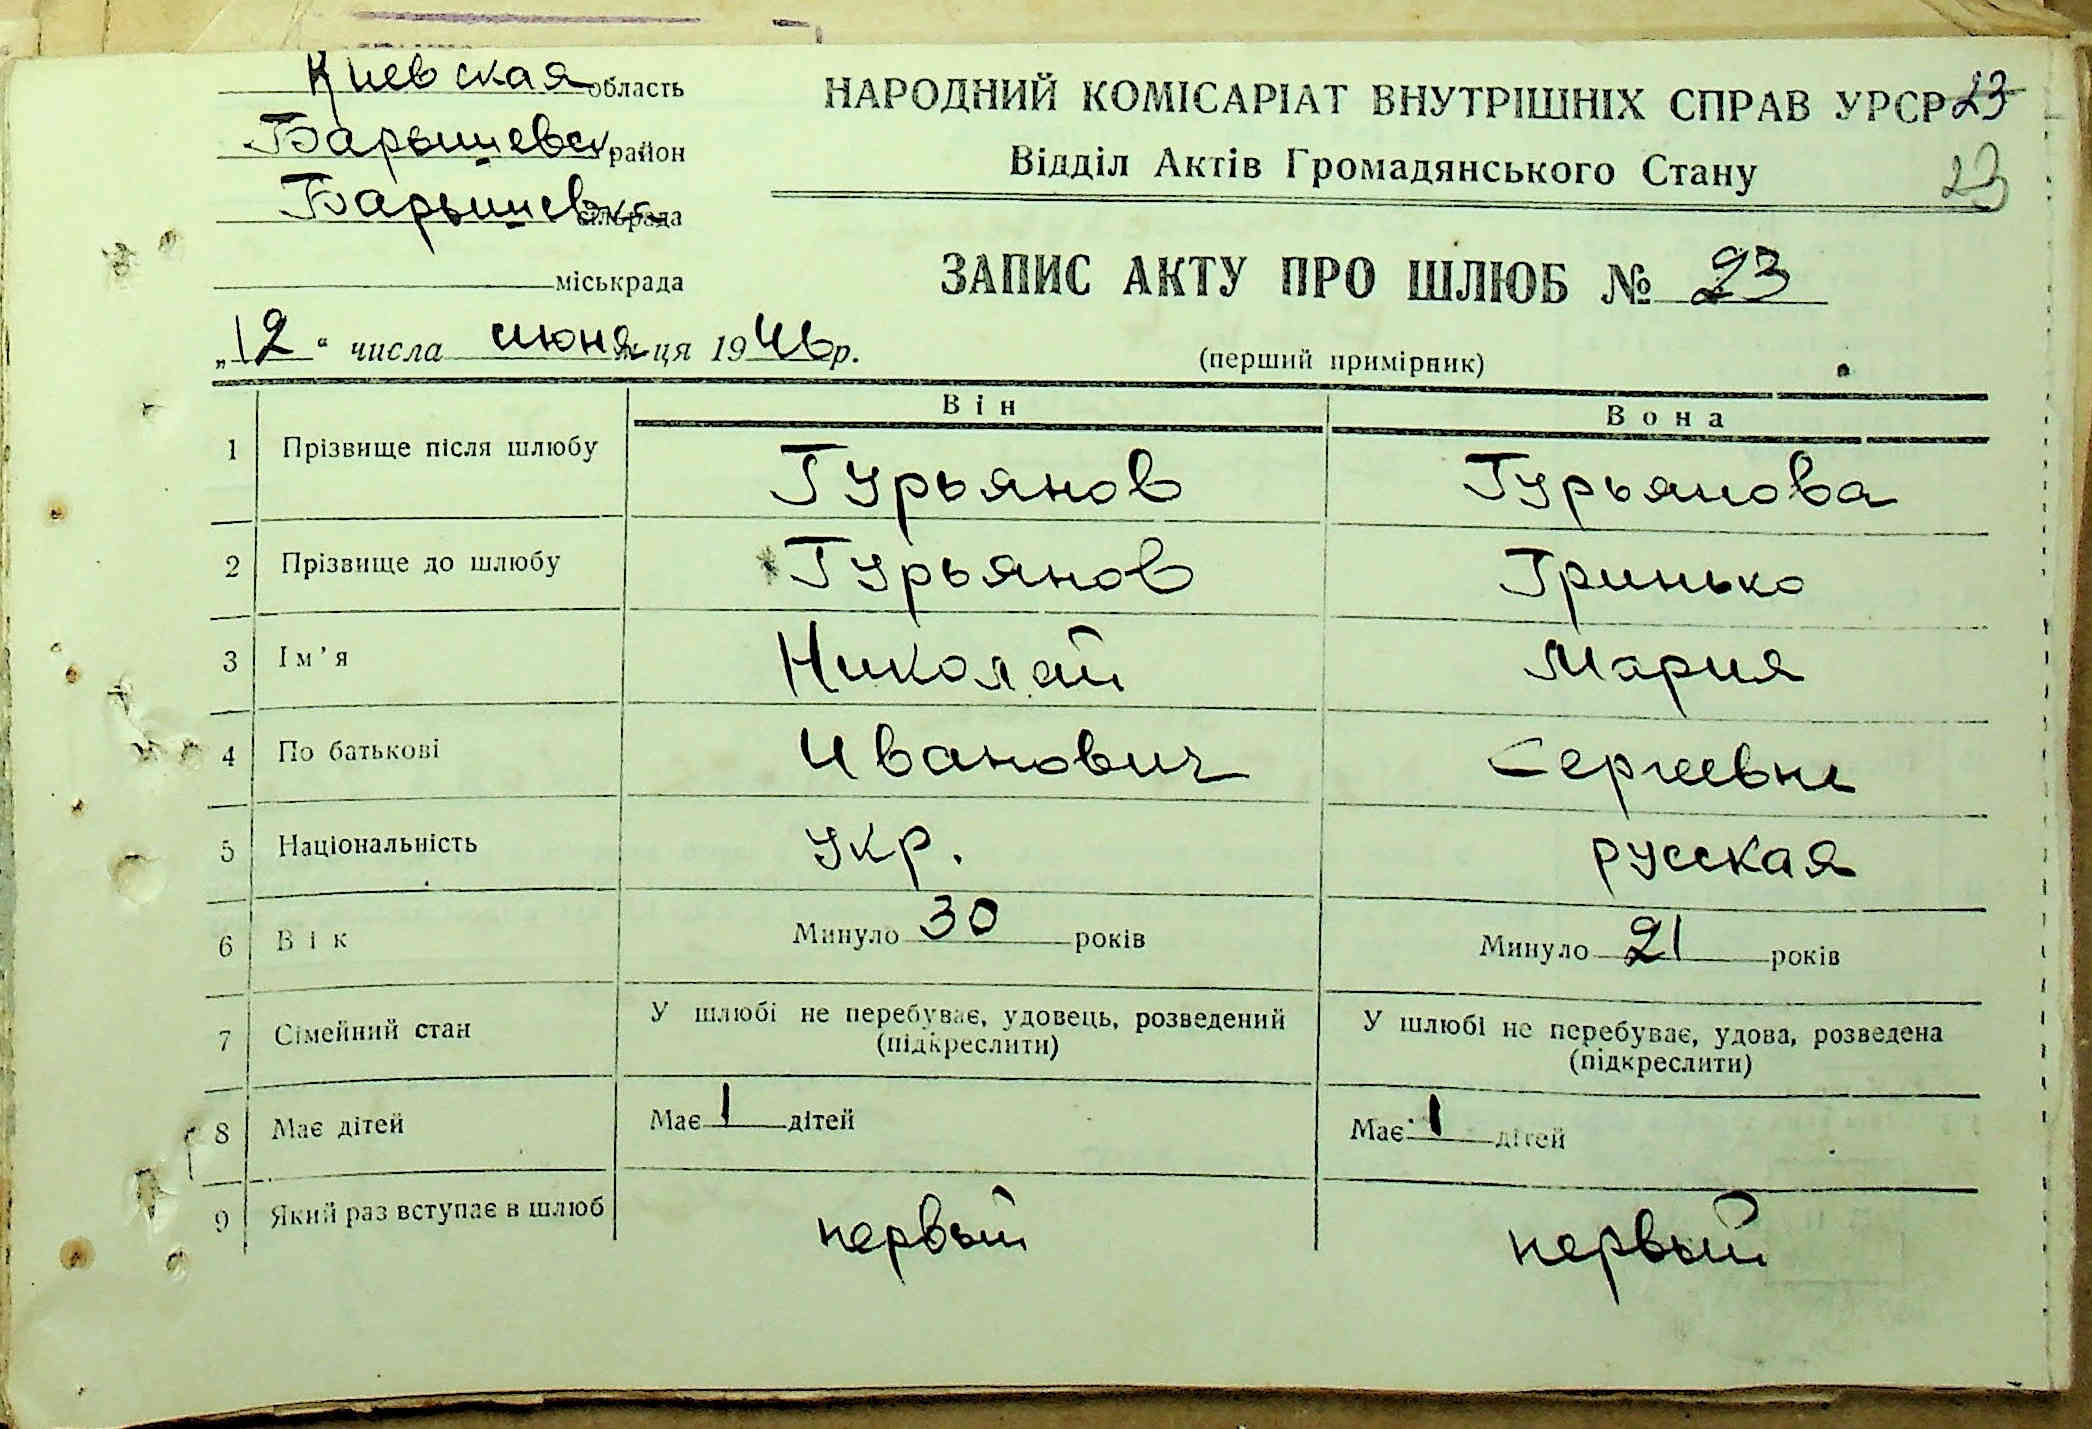 Киевская область
Барышевск район
Барышевск сільрада
міськрада
НАРОДНИЙ КОМІСАРІАТ ВНУТРІШНІХ СПРАВ УРСР 23
Відділ Актів Громадянського Стану
23
ЗАПИС АКТУ ПРО ШЛЮБ № 23
„12“ числа июня ця 1946р.
(перший примірник)
Він
Вона
1 Прізвище після шлюбу Гурьянов Гурьянова
2 Прізвище до шлюбу Гурьянов Гринько
3 Ім'я Николай Мария
4 По батькові Иванович Сергеевне
5 Національність укр. русская
6 Вік Минуло 30 років Минуло 21 років
7 Сімейний стан У шлюбі не перебуває, удовець, розведений У шлюбі не перебуває, удова, розведена
(підкреслити) (підкреслити)
8 Має дітей Має 1 дітей Має 1 дітей
9 Який раз вступає в шлюб первый первый